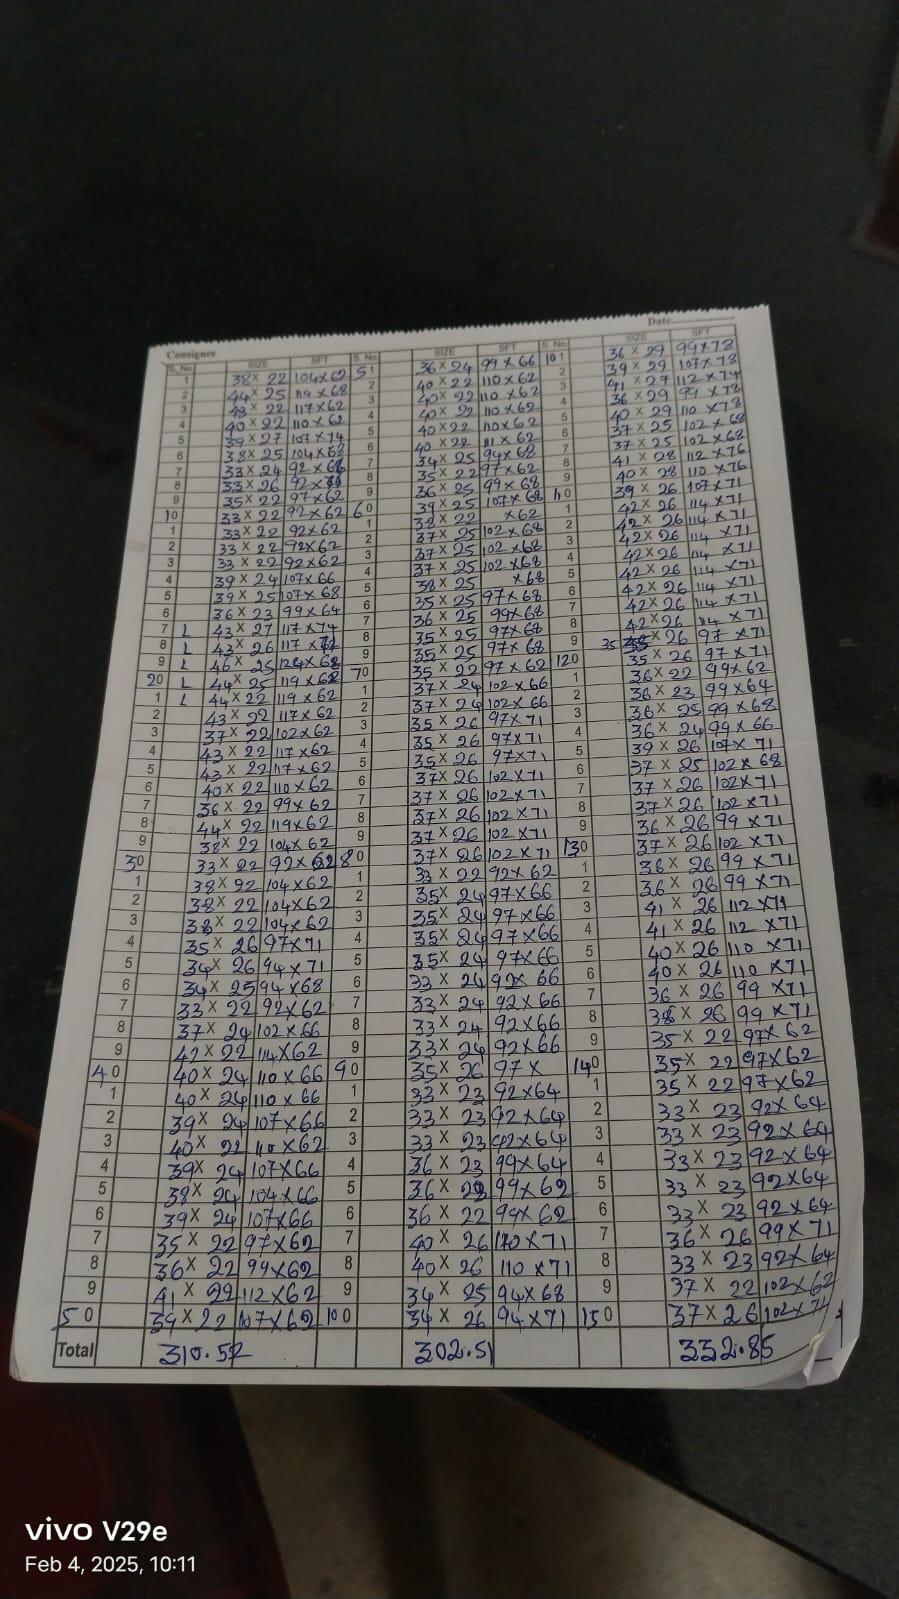 Consignee Date
S. No SIZE SFT S. No SIZE SFT S. No SIZE SFT
1 38 X 22 104X62 51 36 X 24 99 X 66 101 36 X 29 99X78
2 44 X 25 119 X 68 2 40 X 22 110 X 62 2 39 X 29 107X78
3 43 X 22 117X62 3 40 X 22 110 X 62 3 41 X 27 112 X 74
4 40 X 22 110 X 62 4 40 X 22 110 X 62 4 36 X 29 99 X 78
5 39 X 27 107 X 74 5 40 X 22 110X62 5 40 X 29 110 X78
6 38 X 25 104X68 6 40 X 22 111 X 62 6 37 X 25 102 X 68
7 33 X 24 92 X 66 7 34 X 25 94X 68 7 37 X 25 102 X68
8 33 X 26 92 X 8 35 X 22 97X 62 8 41 X 28 112 X76
9 35 X 22 97X62 9 36 X 25 99 X 68 9 40 X 28 110 X76
10 33 X 22 92 X 62 60 39 X 25 107X 68 110 39 X 26 107X71
1 33 X 22 92X62 1 38 X 22 X 62 1 42 X 26 114 X71
2 33 X 22 92X62 2 37 X 25 102 X 68 2 42 X 26 114 X 71
3 33 X 22 92X62 3 37 X 25 102 X68 3 42X 26 114 X71
4 39 X 24 107X 66 4 37 X 25 102 X68 4 42X 26 114 X 71
5 39 X 25 107X 68 5 38 X 25 X 68 5 42 X 26 114 X71
6 36 X 23 99X 64 6 35 X 25 97X 68 6 42 X 26 114 X71
7 L 43 X 27 117 X 74 7 36 X 25 99X68 7 42 X 26 114 X71
8 L 43 X 26 117 X 8 35 X 25 97X 68 8 42X 26 X 71
9 L 46 X 25 124X 68 9 35 X 25 97 X 68 9 35 X 26 97 X71
20 L 44X 25 119 X 68 70 35 X 22 97 X 62 120 35 X 26 97 X 71
1 L 44X 22 119 X 62 1 37 X 24 102 X 66 1 36X 22 99X62
2 43 X 22 117X 62 2 37 X 24 102X 66 2 36X 23 99X64
3 37X 22 102X 62 3 35 X 26 97X 71 3 36X 25 99 X68
4 43 X 22 117X 62 4 35 X 26 97X71 4 36X 24 99X 66
5 43 X 22 117X62 5 35 X 26 97X71 5 39 X 26 107X 71
6 40 X 22 110 X 62 6 37X 26 102X71 6 37X 25 102X 68
7 36X 22 99X62 7 37X 26 102 X71 7 37 X 26 102X71
8 44X 22 119X62 8 37X 26 102 X71 8 37X 26 102 X71
9 38X 22 104X 62 9 37X 26 102 X71 9 36 X 26 99 X71
30 33 X 22 92X 62 80 37X 26 102 X 71 130 37X 26 102 X71
1 38 X 22 104X62 1 33 X 22 92X 62 1 36X 26 99 X71
2 38 X 22 104X62 2 35X 24 97X66 2 36 X 26 99 X71
3 38 X 22 104X62 3 35X 24 97 X66 3 41 X 26 112 X71
4 35 X 26 97X71 4 35X 24 97X66 4 41 X 26 112 X71
5 34X 26 94 X71 5 35X 24 97X66 5 40X 26 110 X71
6 34 X 25 94X68 6 33 X 24 92X 66 6 40X 26 110 X71
7 33 X 22 92X62 7 33 X 24 92X66 7 36X 26 99 X71
8 37X 24 102X 66 8 33 X 24 92X66 8 36X 26 99 X71
9 42X 22 114X62 9 33 X 24 92X66 9 35 X 22 97X 62
40 40X 24 110 X 66 90 35X 26 97 X 140 35X 22 97X62
1 40X 24 110 X 66 1 33 X 23 92X64 1 35 X 22 97X62
2 39X 24 107X66 2 33 X 23 92X64 2 33X 23 92X 64
3 40X 22 110X62 3 33 X 23 92X64 3 33X 23 92X64
4 39X 24 107X66 4 36 X 23 99X64 4 33 X 23 92X64
5 38X 24 104X66 5 36 X 22 99X62 5 33 X 23 92X64
6 39X 24 107X66 6 36 X 22 99X 62 6 33X 23 92X64
7 35 X 22 97X62 7 40X 26 110 X71 7 36X 26 99X71
8 36X 22 99X62 8 40X 26 110 X71 8 33X 23 92X64
9 41 X 22 112X62 9 34 X 25 94X68 9 37X 22 102X62
50 39X22 107X62 100 34X 26 94X71 150 37X26 102X71
Total 310.52 302.51 332.85
vivo V29e
Feb 4, 2025, 10:11